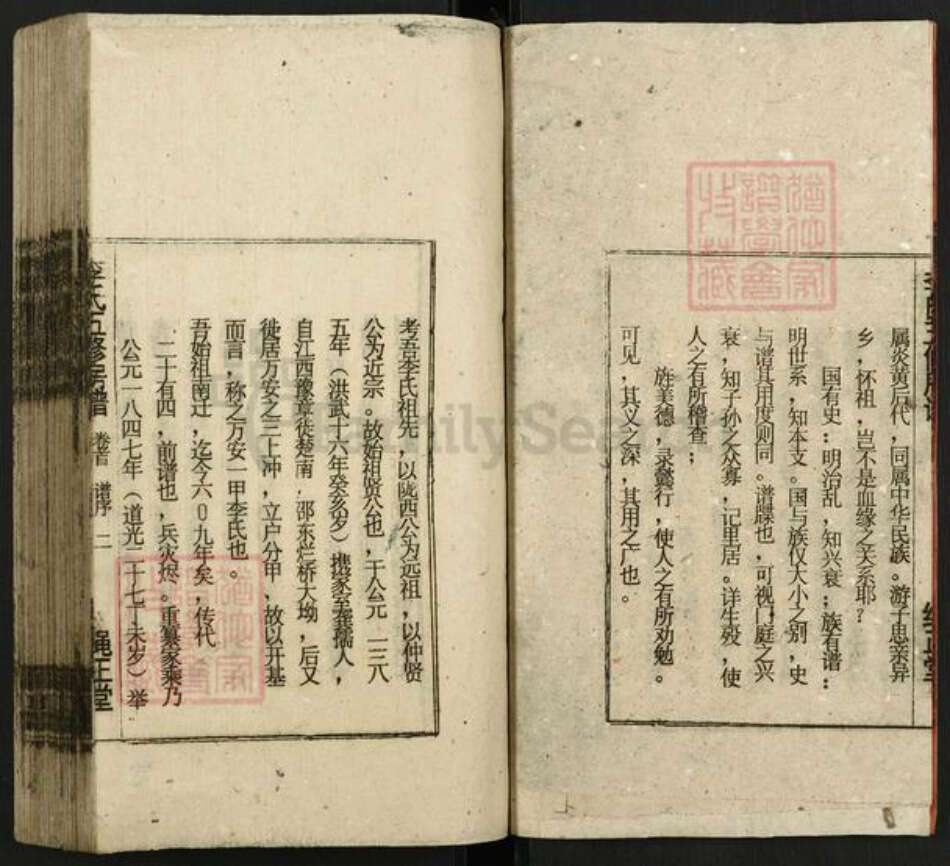 属炎黄后代，同属中华民族。游子思亲异
乡，怀祖，岂不是血缘之关系耶？
国有史：明治乱，知兴衰；族有谱：
明世系，知本支。国与族仅大小之别，史
与谱其用度则同。谱牒也，可视门庭之兴
衰，知子孙之众寡，记里居。详生殁，使
人之有所稽查；
旌美德，录懿行，使人之有所劝勉。
可见，其义之深，其用之广也。
考吾李氏祖先，以陇西公为远祖，以仲贤
公为近宗。故始祖贤公也，于公元一三八
五年（洪武十六年癸亥岁）携家室龚孺人，
自江西豫章徙楚南，邵东烂桥大坳，后又
徙居万安之三上冲，立户分甲，故以开基
而言，称之万安一甲李氏也。
吾始祖南迁，迄今六0九年矣，传代
二十有四，前谱也，兵灾烬。重纂家乘乃
公元一八四七年（道光二十七丁未岁）举
李氏五修房谱 卷首 谱序 二 绳正堂
FamilySe